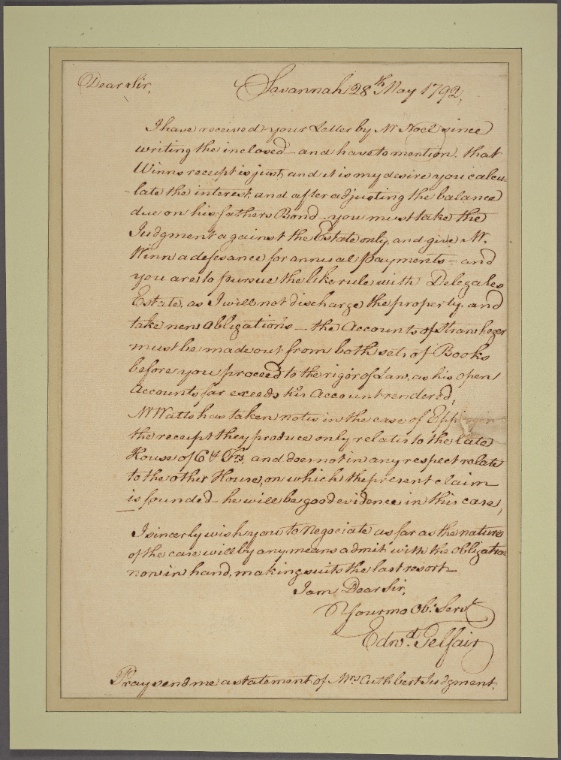 Dear Sir, Savannah 28th May 1792,
I have received your Letter by Mr Noel since
writing the inclosed – and have to mention, that
Winns receipt is just, and it is my desire you calcu
-late the interest, and after adjusting the balance
due on his fathers Bond – you must take the
Judgment against the Estate only, and give Mr
Winn a defeasance for annual payments – and
you are to pursue the like rule with Delegales
Estate, as I will not discharge the property, and
take new obligations – the Accounts of
must be made out from both sets of Books
before you proceed to the rigor of Law, as his open
Accounts far exceeds his Account rendered,
Mr Watts has taken notes in the case of
the receipt they produce only relates to the late
House of and does not in any respect relate
to the other House, on which the present claim
is founded – he will be good evidence in this case,
I sincerly wish you to Negociate as far as the nature
of the case will by any means admit with the obligation
now in hand, making suits the last resort –
I am, Dear Sir,
Your mo Ob. Servt
Edwd. Telfair
Pray send me a statement of Mrs Cuthbert Judgment.